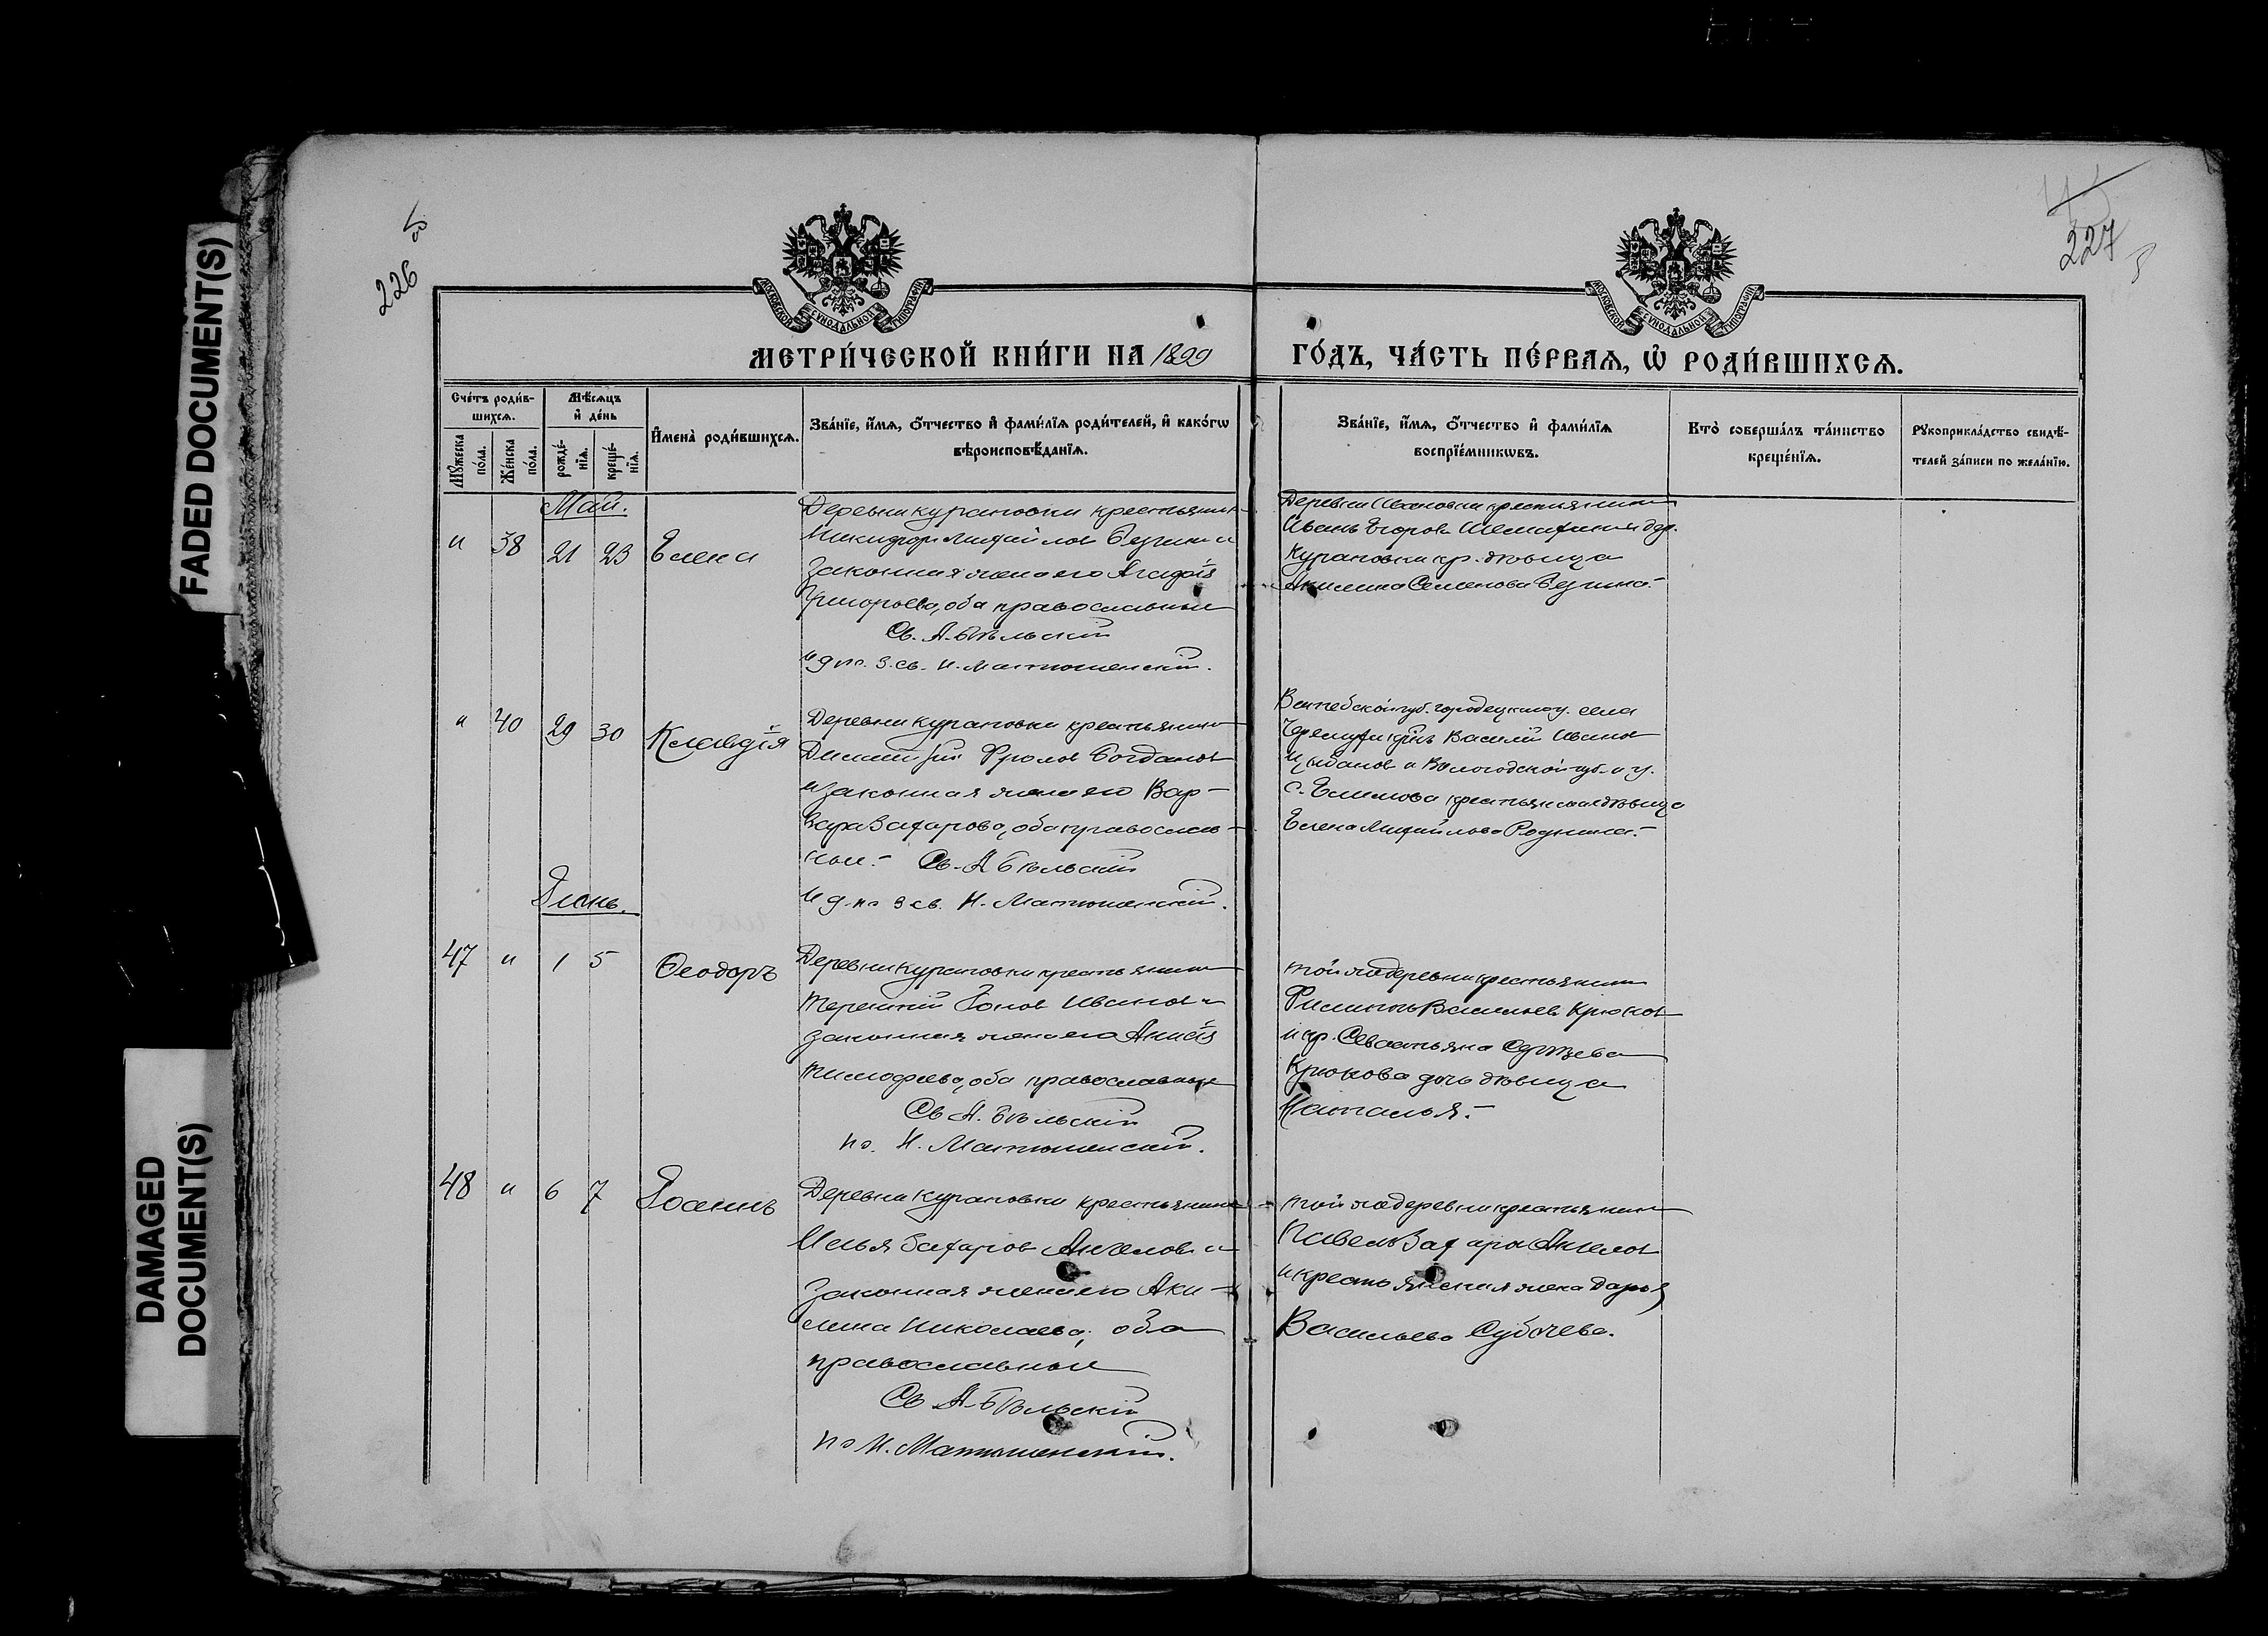 FADED DOCUMENT(S)
DAMAGED
DOCUMENT(S)
226
227
МОСКОВСКОЙ СѴНОДАЛЬНОЙ ТИПОГРАФІИ
МОСКОВСКОЙ СѴНОДАЛЬНОЙ ТИПОГРАФІИ
МЕТРИ́ЧЕСКОЙ КНИ́ГИ НА 1899
ГО́ДЪ, ЧА́СТЬ ПЕ́РВАѦ, Ѡ҆ РОДИ́ВШИХСѦ.
Сче́тъ роди́в-
шихсѧ.
Мꙋ́жеска
по́ла.
Же́нска
по́ла.
Мѣ́сѧцъ
и҆ де́нь
рожде́-
нїѧ.
креще́-
нїѧ.
И҆мена̀ роди́вшихсѧ.
Зва́нїе, и҆́мѧ, ѻ҆́тчество и҆ фами́лїѧ роди́телей, и҆ како́гѡ
вѣроисповѣ́данїѧ.
Зва́нїе, и҆́мѧ, ѻ҆́тчество и҆ фами́лїѧ
воспрїе́мникѡвъ.
Кто̀ соверша́лъ та́инство
креще́нїѧ.
Рꙋкоприкла́дство свидѣ́-
телей за́писи по жела́нїю.
Май.
" 38 21 23 Елена
Деревни Курановки крестьянин
Никифор Михайлов Безгин и
законная жена его Агафiя
Григорьева, оба православные
Св. А. Бѣльскiй
И д пс. 3. св. Н. Матюшенскiй.
Деревни Ивановки крестьянин
Иванъ Егоров и дер.
Курановки кр. дѣвица
Акилина Семенова Безгина.
" 40 29 30 Клавдiя
Деревни Курановки крестьянин
Димитрiй Фролов Богданов
и законная жена его Вар-
вара Захарова, оба православ-
ные. Св. А Бѣльскiй
И д. пс 3 св. Н. Матюшенскiй.
Витебской губ. Городецкаго у. села
Василiй Иванов
и Вологодской губ. и у.
с. крестьянская дѣвица
Елена Михайлова Роднина.
Iюнь.
47 " 1 5 Ѳеодоръ
Деревни Курановки крестьянин
Терентiй Iонов Иванов и
законная жена его Анисiя
Тимофеева, оба православные
Св А. Бѣльскiй
пс. Н. Матюшенскiй.
той же деревни крестьянин
Филиппъ Васильев Крюков
и кр. Севастьяна
Крюкова дочь дѣвица
Наталья.
48 " 6 7 Iоаннъ
Деревни Курановки крестьянин
Илья Захаров Ангелов и
законная жена его Аки-
лина Николаева, оба
православные
Св А. Бѣльскiй
пс Н. Матюшенскiй.
той же деревни крестьянин
Павелъ Захаров Ангелов
и крестьянская жена Дарья
Васильева Субочева.